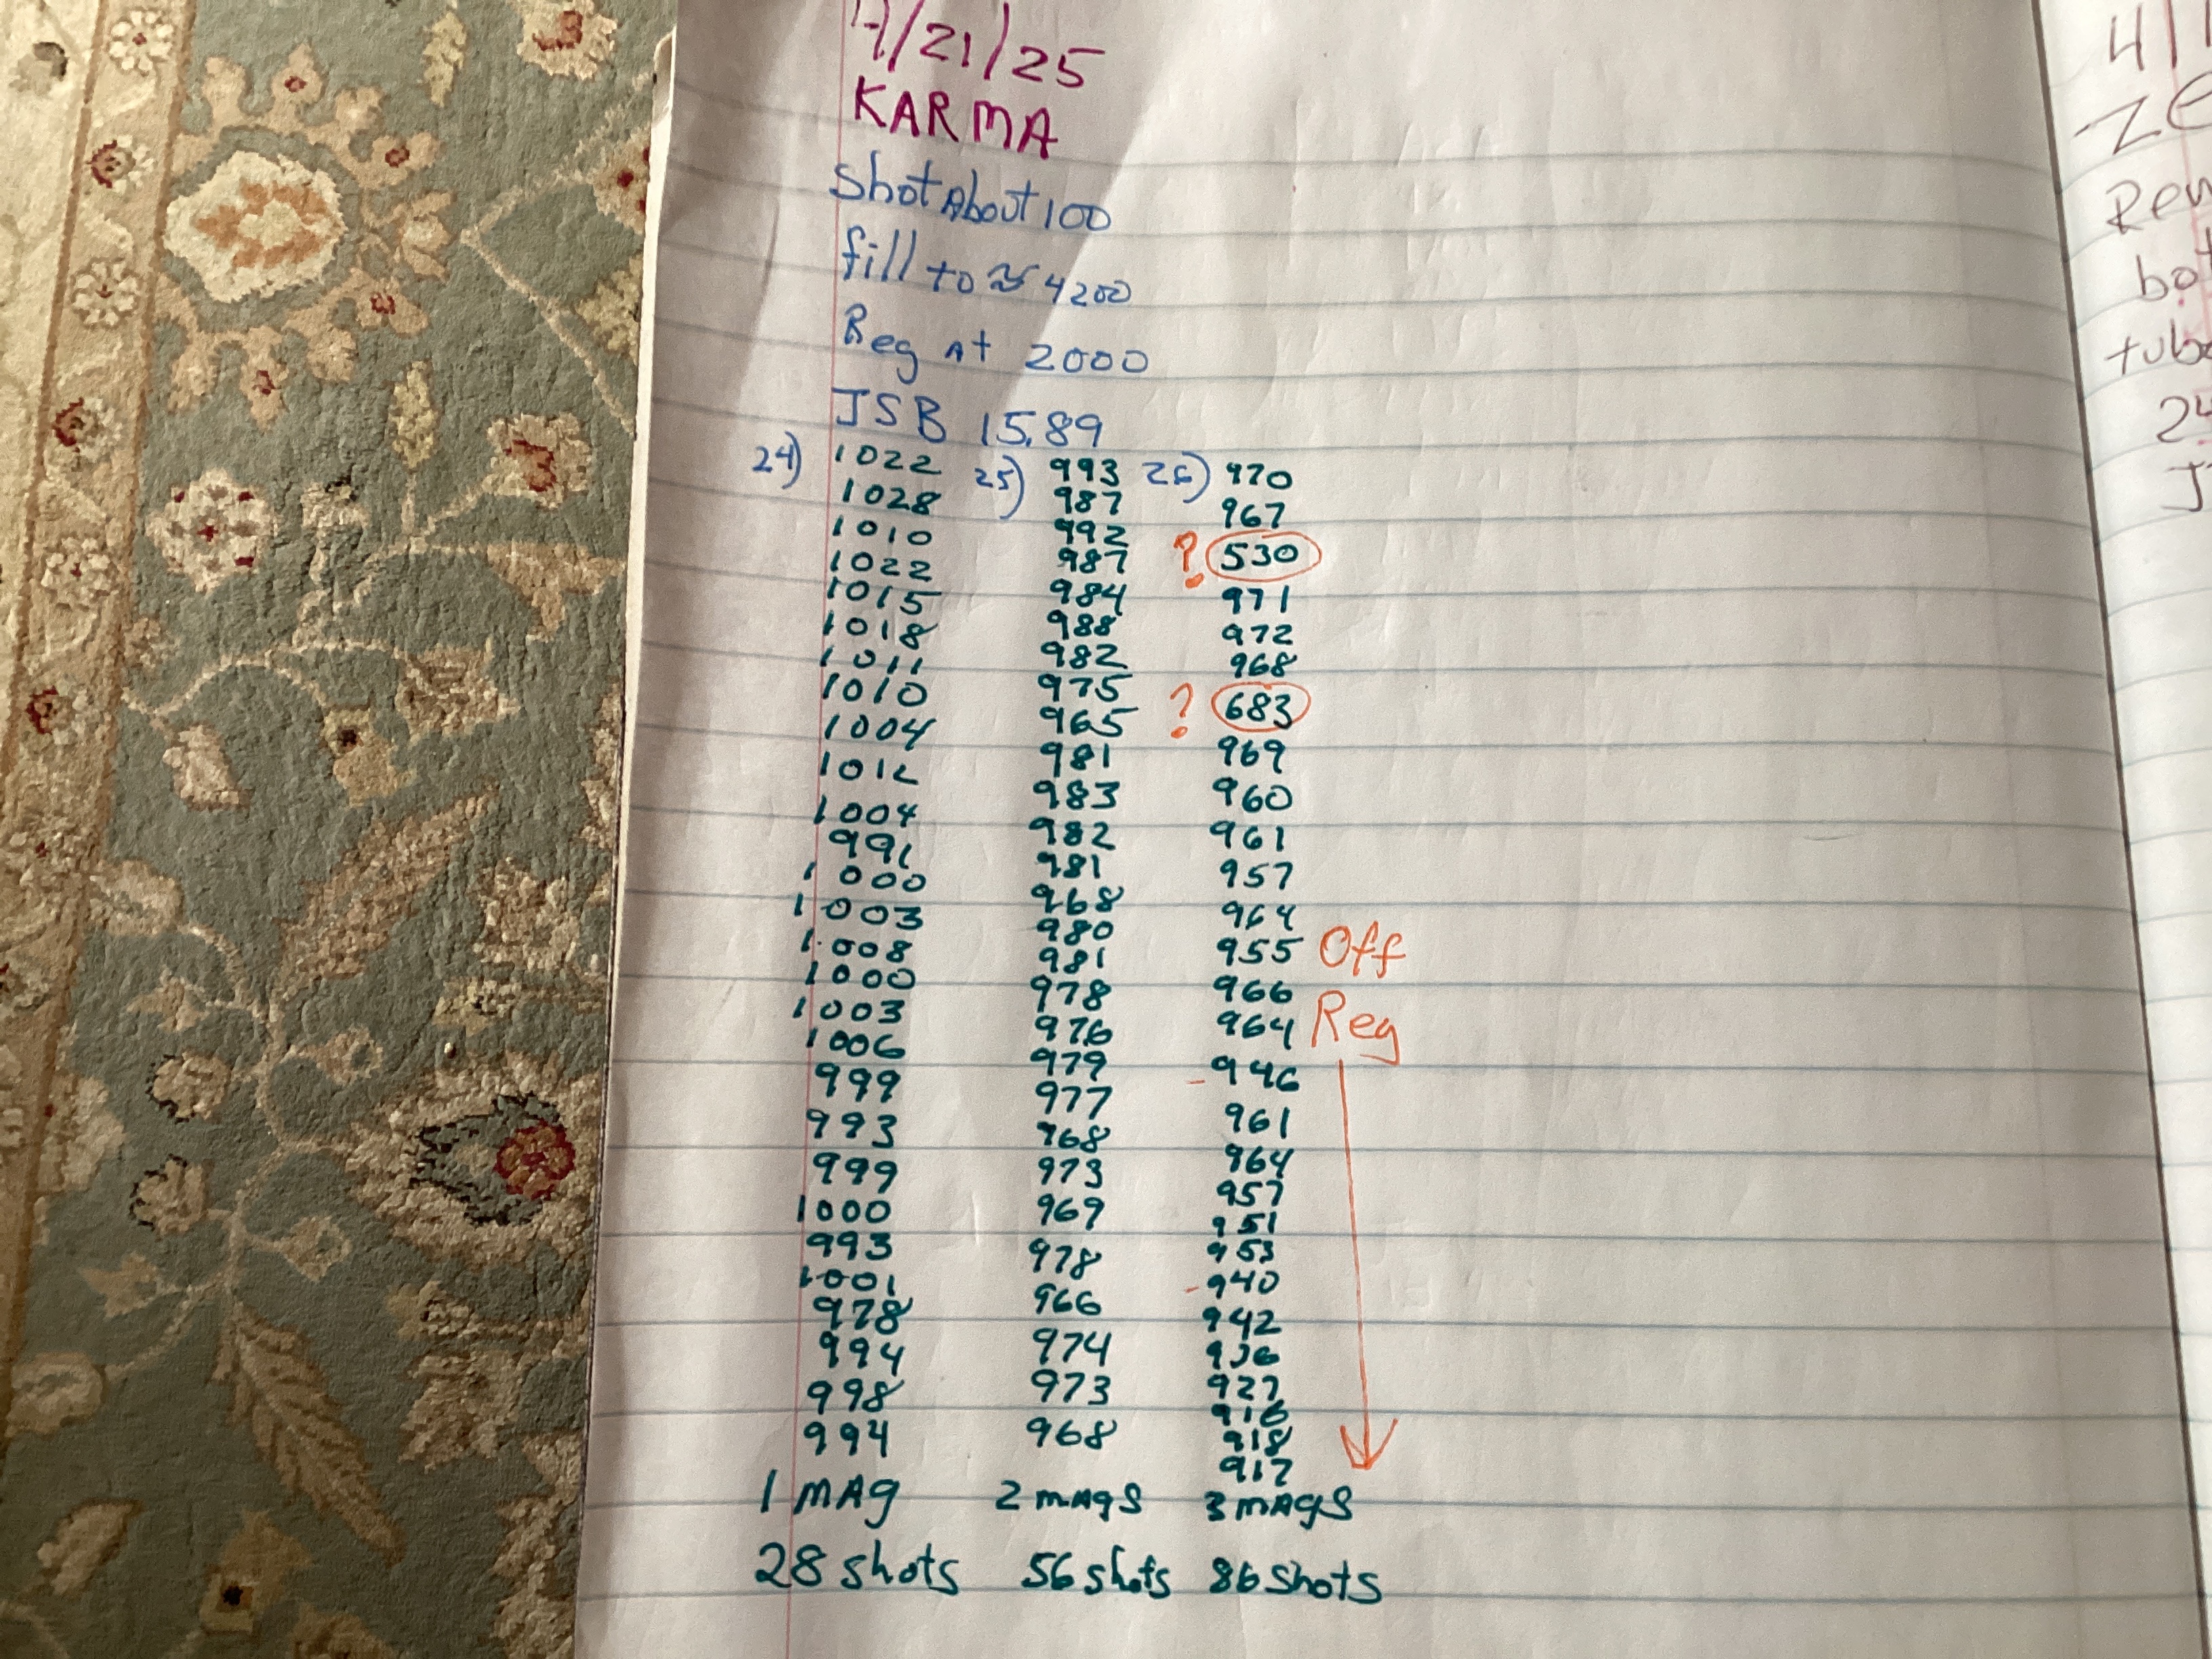 4/21/25
KARMA
Shot About 100
fill to ≈ 4200
Reg At 2000
JSB 15.89
24) 1022 25) 993 26) 970
1028 987 967
1010 992 ? 530
1022 987 971
1015 984 972
1018 988 968
1011 982 ? 683
1010 975 969
1004 965 960
1012 981 961
1004 983 957
991 982 964
1000 981 955 Off
1003 968 966
1008 980 964 Reg
1000 981 - 946
1003 978 961
1006 976 964
999 979 957
993 977 951
999 968 953
1000 973 - 940
993 969 942
1001 978 936
978 966 927
994 974 916
998 973 918
994 968 917
1 MAg 2 mAgS 3 mAgS
28 shots 56 shots 86 shots
4/1
Rem
bot
tube
24
J